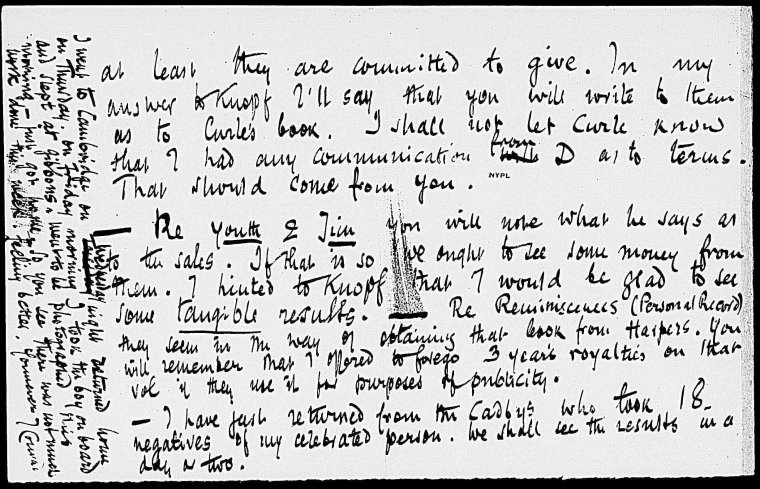 at least they are committed to give. In my
answer to Knopf I'll say that you will write to them
as to Curle's book. I shall not let Curle know
that I had any communication from D as to terms.
NYPL
That should come from you.
— Re Youth & Jim you will note what he says as
to the sales. If that is so we ought to see some money from
them. I hinted to Knopf that I would be glad to see
some tangible results. — Re Reminiscences (Personal Record)
they seem in the way of obtaining that book from Harpers. You
will remember that I offered to forego 3 year's royalties on that
vol if they use it for purposes of publicity.
— I have just returned from the Cadbys who took 18
negatives of my celebrated person. We shall see the results in a
day or two.
I went to Cambridge on Wednesday night returned home
on Thursday. On Friday morning I took the boy on board
and slept at Gibbons. Went to be photographed this
morning — just got home. So you see there was not much
work done this week. Feeling better. Yours ever J Conrad